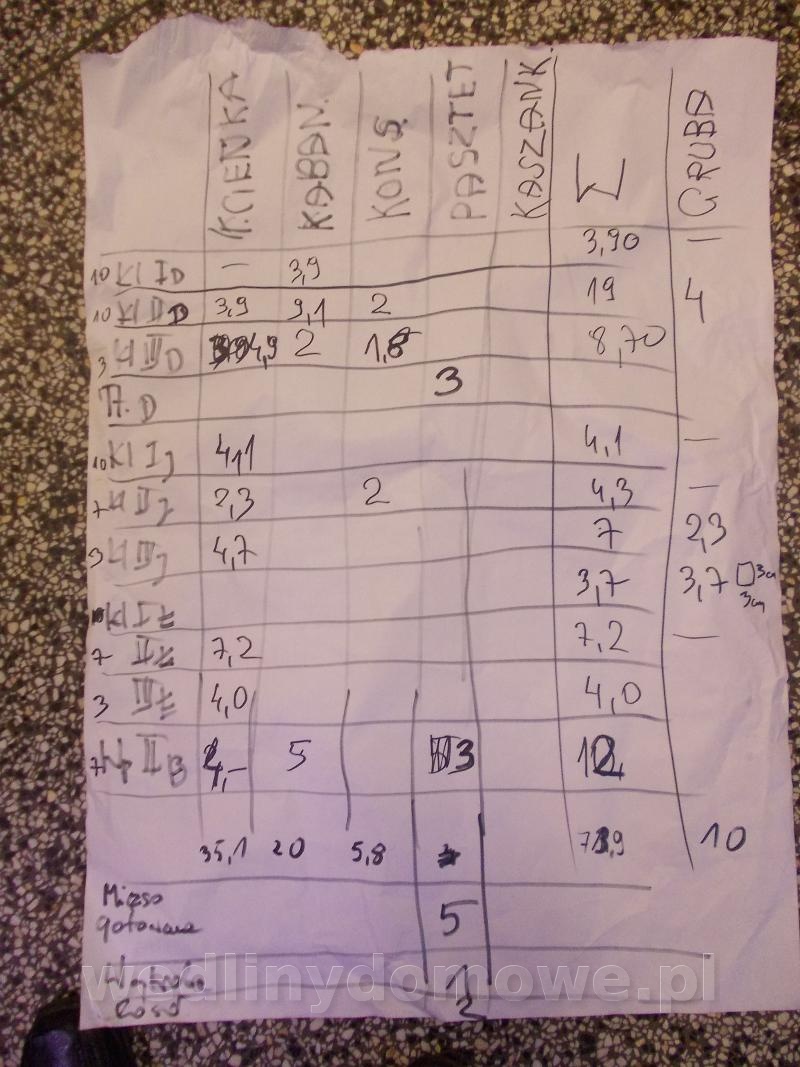 K.CIEŃKA KABAN. KONS. PASZTET KASZANK. Σ GRUBA
3,90 —
10 Kl I D — 3,9
10 Kl II D 3,9 9,1 2 19 4
3 Kl III D 4,9 2 1,8 8,70
Tł. D 3
10 Kl I j 4,1 4,1 —
7 Kl II j 2,3 2 4,3 —
3 Kl III j 4,7 7 2,3
Kl I ż 3,7 3,7 3cm
3cm
7 II ż 7,2 7,2 —
3 III ż 4,0 4,0
7 II B 4,- 5 3 12
35,1 20 5,8 10
Mięso
gotowane 5
Wątroba 1
2
wedlinydomowe.pl